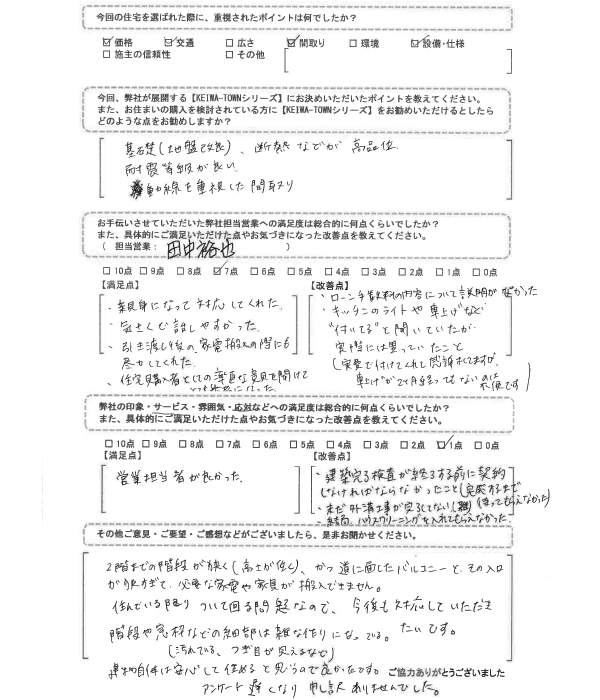 今回の住宅を選ばれた際に、重視されたポイントは何でしたか?
☑価格 ☑交通 □広さ ☑間取り □環境 ☑設備・仕様
□施主の信頼性 □その他
今回、弊社が展開する【KEIWA-TOWNシリーズ】にお決めいただいたポイントを教えてください。
また、お住まいの購入を検討されている方に【KEIWA-TOWNシリーズ】をお勧めいただけるとしたら
どのような点をお勧めしますか?
基礎(地盤改良)、断熱などが高品位
耐震等級が良い
動線を重視した間取り
お手伝いさせていただいた弊社担当営業への満足度は総合的に何点くらいでしたか?
また、具体的にご満足いただけた点やお気づきになった改善点を教えてください。
( 担当営業: 田中裕也 )
□10点 □9点 □8点 ☑7点 □6点 □5点 □4点 □3点 □2点 □1点 □0点
【満足点】
・親身になって対応してくれた.
・気さくで話しやすかった.
・引き渡し後の家電搬入の際にも
尽力してくれた.
、住宅購入者としての率直な意見を聞けて
【改善点】
・ローン手数料の内容について説明が無かった
・キッチンのライトや車上げなど
"付いてる"と聞いていたが
実際には異っていたこと
(実費で付けてくれ
弊社の印象・サービス・雰囲気・応対などへの満足度は総合的に何点くらいでしたか?
また、具体的にご満足いただけた点やお気づきになった改善点を教えてください。
□10点 □9点 □8点 □7点 □6点 □5点 □4点 □3点 □2点 ☑1点 □0点
【満足点】
営業担当者が良かった.
【改善点】
・建築完了検査が終了する前に契約
しなければならなかったこと(完成するまで
待ってもらえなかった)
・未だ外溝工事が完了してない
・結局、ハウスクリーニングを入れてもらえなかった.
その他ご意見・ご要望・ご感想などがございましたら、是非お聞かせください。
2階までの階段が狭く(高さが低く)、かつ道に面したバルコニーと、その入口
が狭すぎて、必要な家電や家具が搬入できません。
住んでいる限りついて回る問題なので、今後も対応していただき
たいです。
階段や窓枠などの細部は雑な作りになってる。
(汚れている、つぎ目が見えるなど)
建物自体は安心して住めると思うので良かったです。
ご協力ありがとうございました
アンケート遅くなり申し訳ありませんでした。